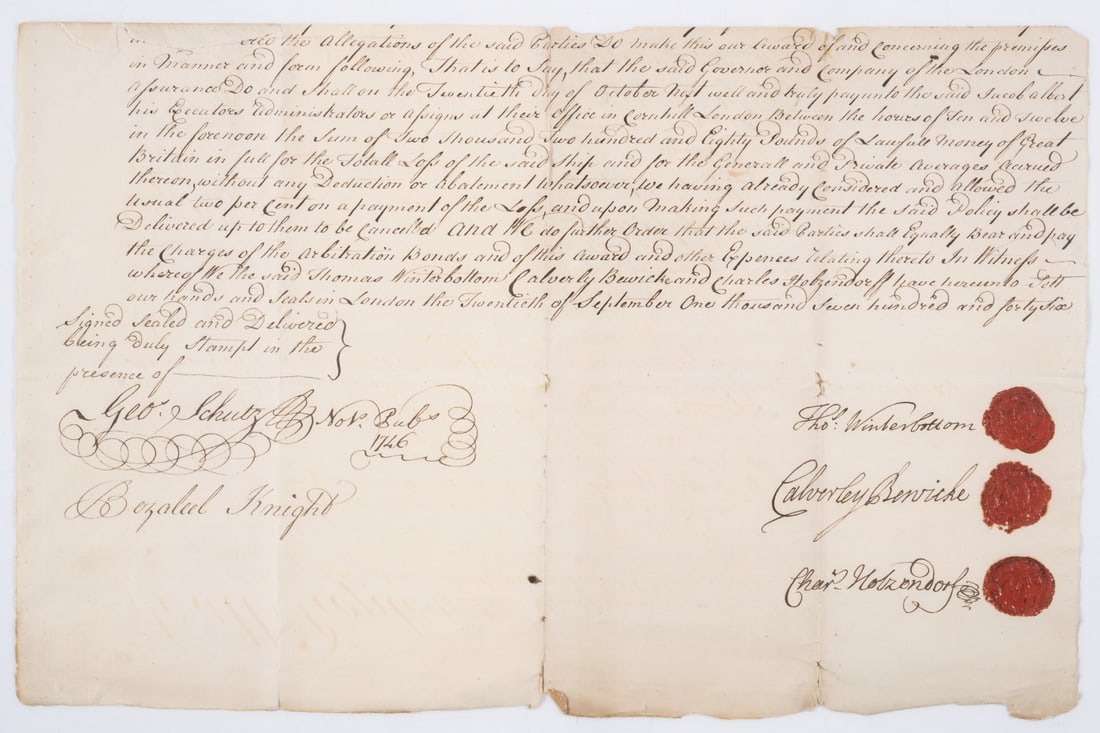 the Allegations of the said Parties Do make this our Award of and Concerning the premisses
in Manner and form following, That is to Say, that the said Governor and Company of the London
Assurance Do and Shall on the Twentieth day of October Next well and truly pay unto the said Jacob albert
his Executors Administrators or Assigns at their Office in Cornhill London Between the hours of Ten and Twelve
in the forenoon the Sum of Two thousand Two hundred and Eighty Pounds of Lawfull Money of Great
Britain in full for the Totall Loss of the said Ship and for the Generall and Private Averages Accrued
thereon, without any Deduction or abatement whatsoever, we having already Considered and allowed the
usual two per Cent on a payment of the Loss, and upon Making Such payment the said Policy shall be
Delivered up to them to be Cancelled And We do further Order that the said Parties shall Equally Bear and pay
the Charges of the Arbitration Bonds and of this Award and other Expences relating thereto In Witness
whereof We the said Thomas Winterbottom Calverly Bewicke and Charles Holzendorff have hereunto Sett
our hands and Seals in London the Twentieth of September One thousand Seven hundred and forty Six
Signed Sealed and Delivered
being Duly Stampt in the
presence of
Geo. Schutz Not. Pubs
1746
Bezaleel Knight
Tho: Winterbottom
Calverley Bewicke
Chars. Holzendorff